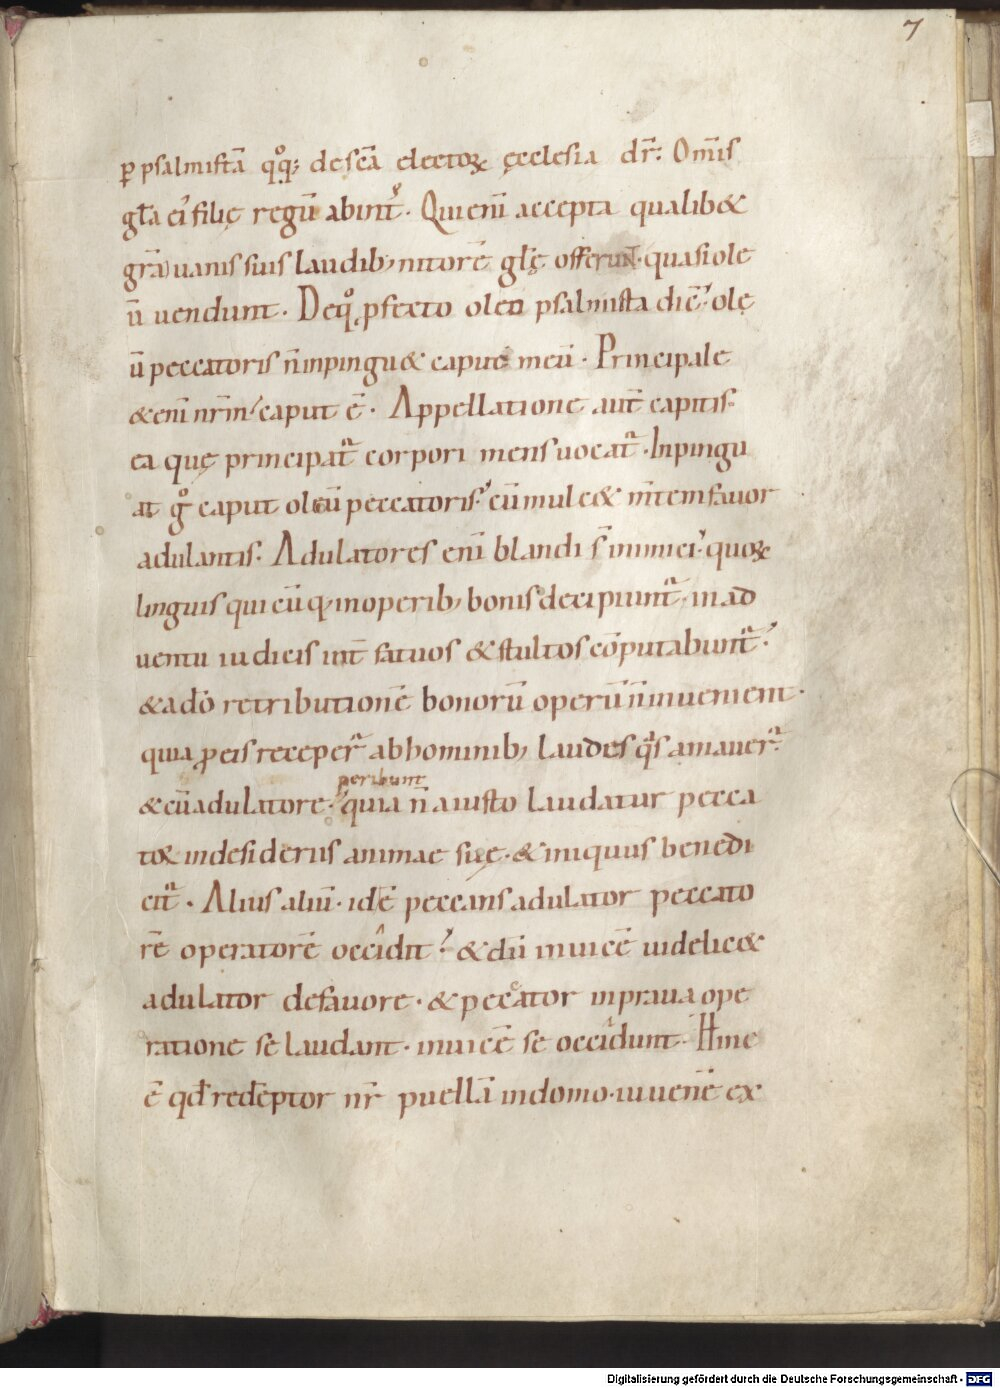 7
ꝑ psalmistā qͦq; de scā electoꝝ ęcclesia dr̄. Om̄is
gła ei' filię regū abint'. Qui eni accepta qualib&
grā uanis suis laudib; nitorē głę offerunt. quasi ole
ū uendunt. Deqͦ ꝓfecto oleo psalmista dic̄. olę
ū peccatoris n̄ inpingu& caput meū. Principale
& eni nr̄m caput ē. Appellatione aut̄ capitis.
ea quę principat̄ corpori mens uocat̄. Inpingu
at gͦ caput oleū peccatoris. cū mulc& m̄tem fauor
adulantis. Adulatores eni blandi s̄ inimici. quoꝝ
linguis qui cūq; in operib; bonis decipiunt̄. in ad
uentu iudicis int̄ fatuos & stultos cōputabunt̄.
& ad dō retributionē bonorū operū n̄ inuenient.
quia ꝓ eis receper̄ ab hominib; laudes qͣs amauer̄.
peribunt
& cū adulatore. quia n̄ a iusto laudatur pecca
toꝝ in desideriis animae suę. & iniquus benedi
cit̄. Alius aliū. idē peccans adulator peccato
rē operatorē occidit. & dū inuicē uidelic&
adulator de fauore. & peccator in praua ope
ratione se laudant. inuicē se occidunt. Hinc
ē qđ redēptor nr̄ puellā in domo. iuuenē ex
Digitalisierung gefördert durch die Deutsche Forschungsgemeinschaft - DFG